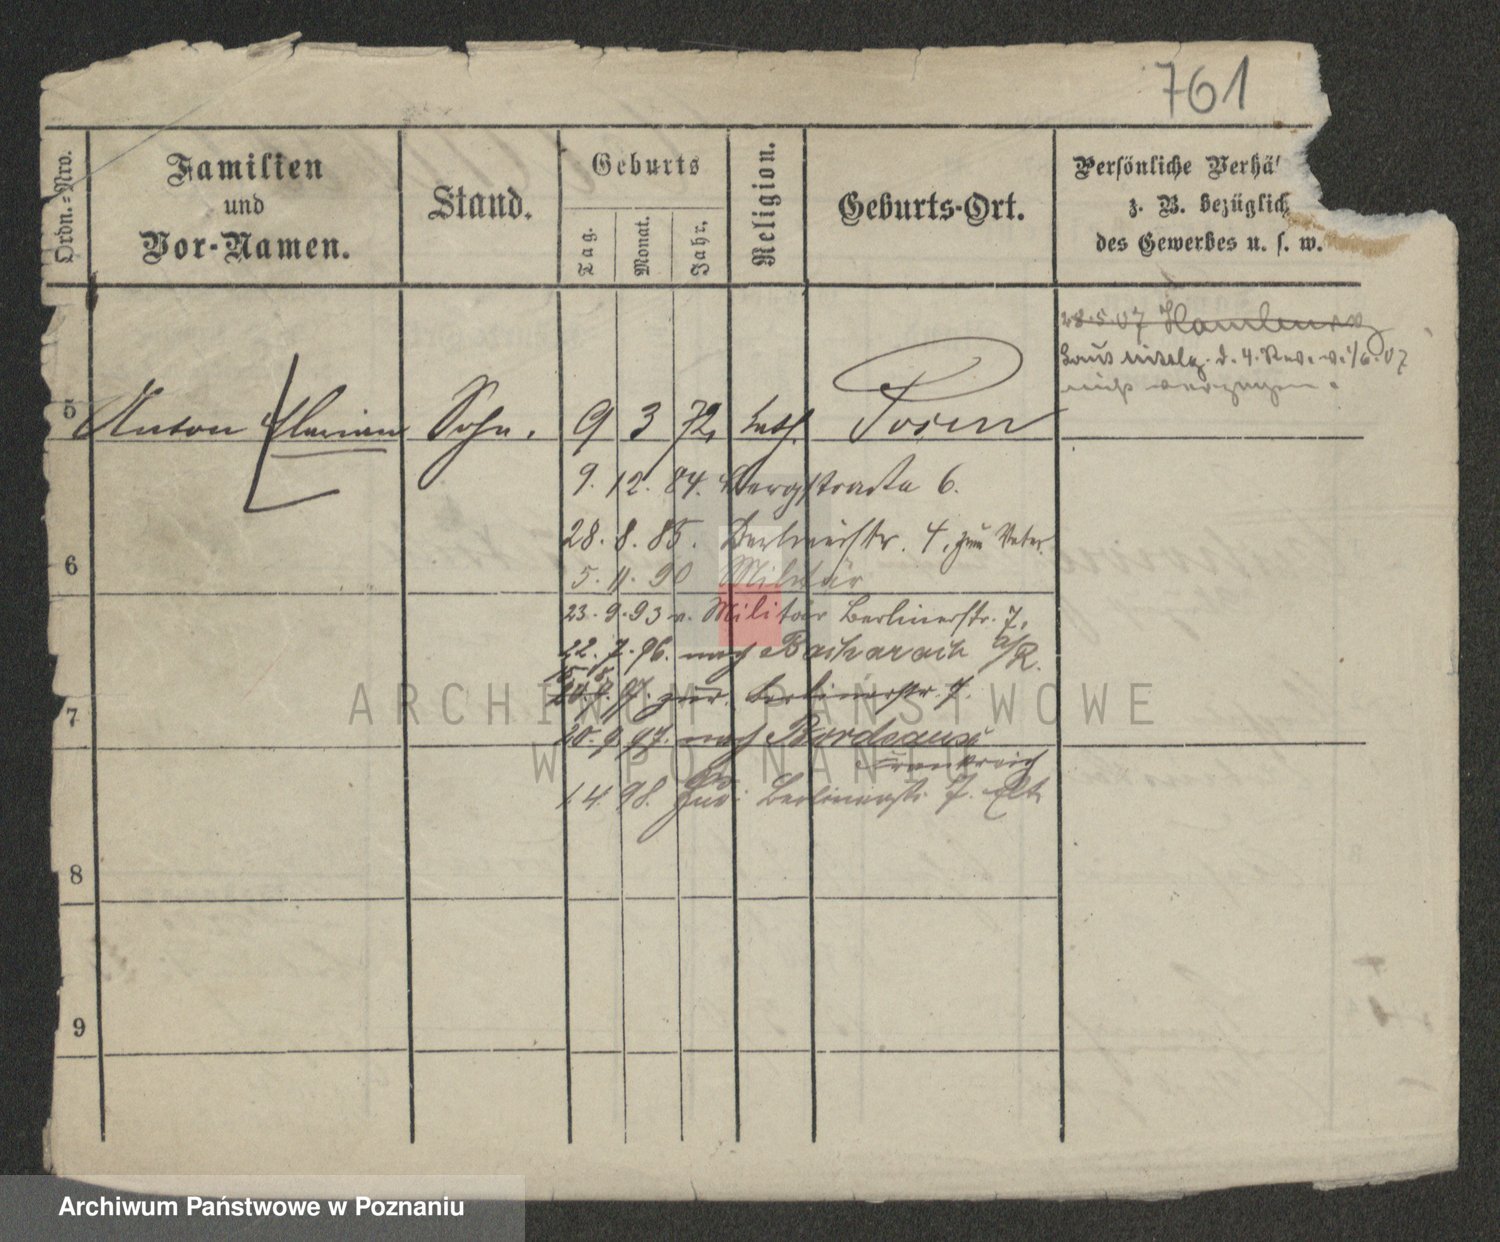 761
Ordn.-Nro.
Familien
und
Vor-Namen.
Stand.
Geburts
Tag.
Monat.
Jahr.
Religion.
Geburts-Ort.
Persönliche Verhä
z. B. bezüglich
des Gewerbes u. s. w.
28.5.07 Hamburg
laut d. 4. Rev. v. 1/6.07
nicht verzogen.
5 Anton Florian Sohn. 9 3 72. kath. Posen
9. 12. 84. Bergstraße 6.
28. 8. 85. Berlinerstr. 4, zum Vater
6
5. 11. 90 Militär
23. 9. 93 v. Militär Berlinerstr. 7.
22. 7. 96. nach Bacharach a/R.
97. zur. Berlinerstr. 7.
7
20. 9. 97. nach Bordeaux
Frankreich
1 4 98. Zur: Berlinerstr. 7. Elt.
8
9
ARCHIWUM PAŃSTWOWE
W POZNANIU
Archiwum Państwowe w Poznaniu